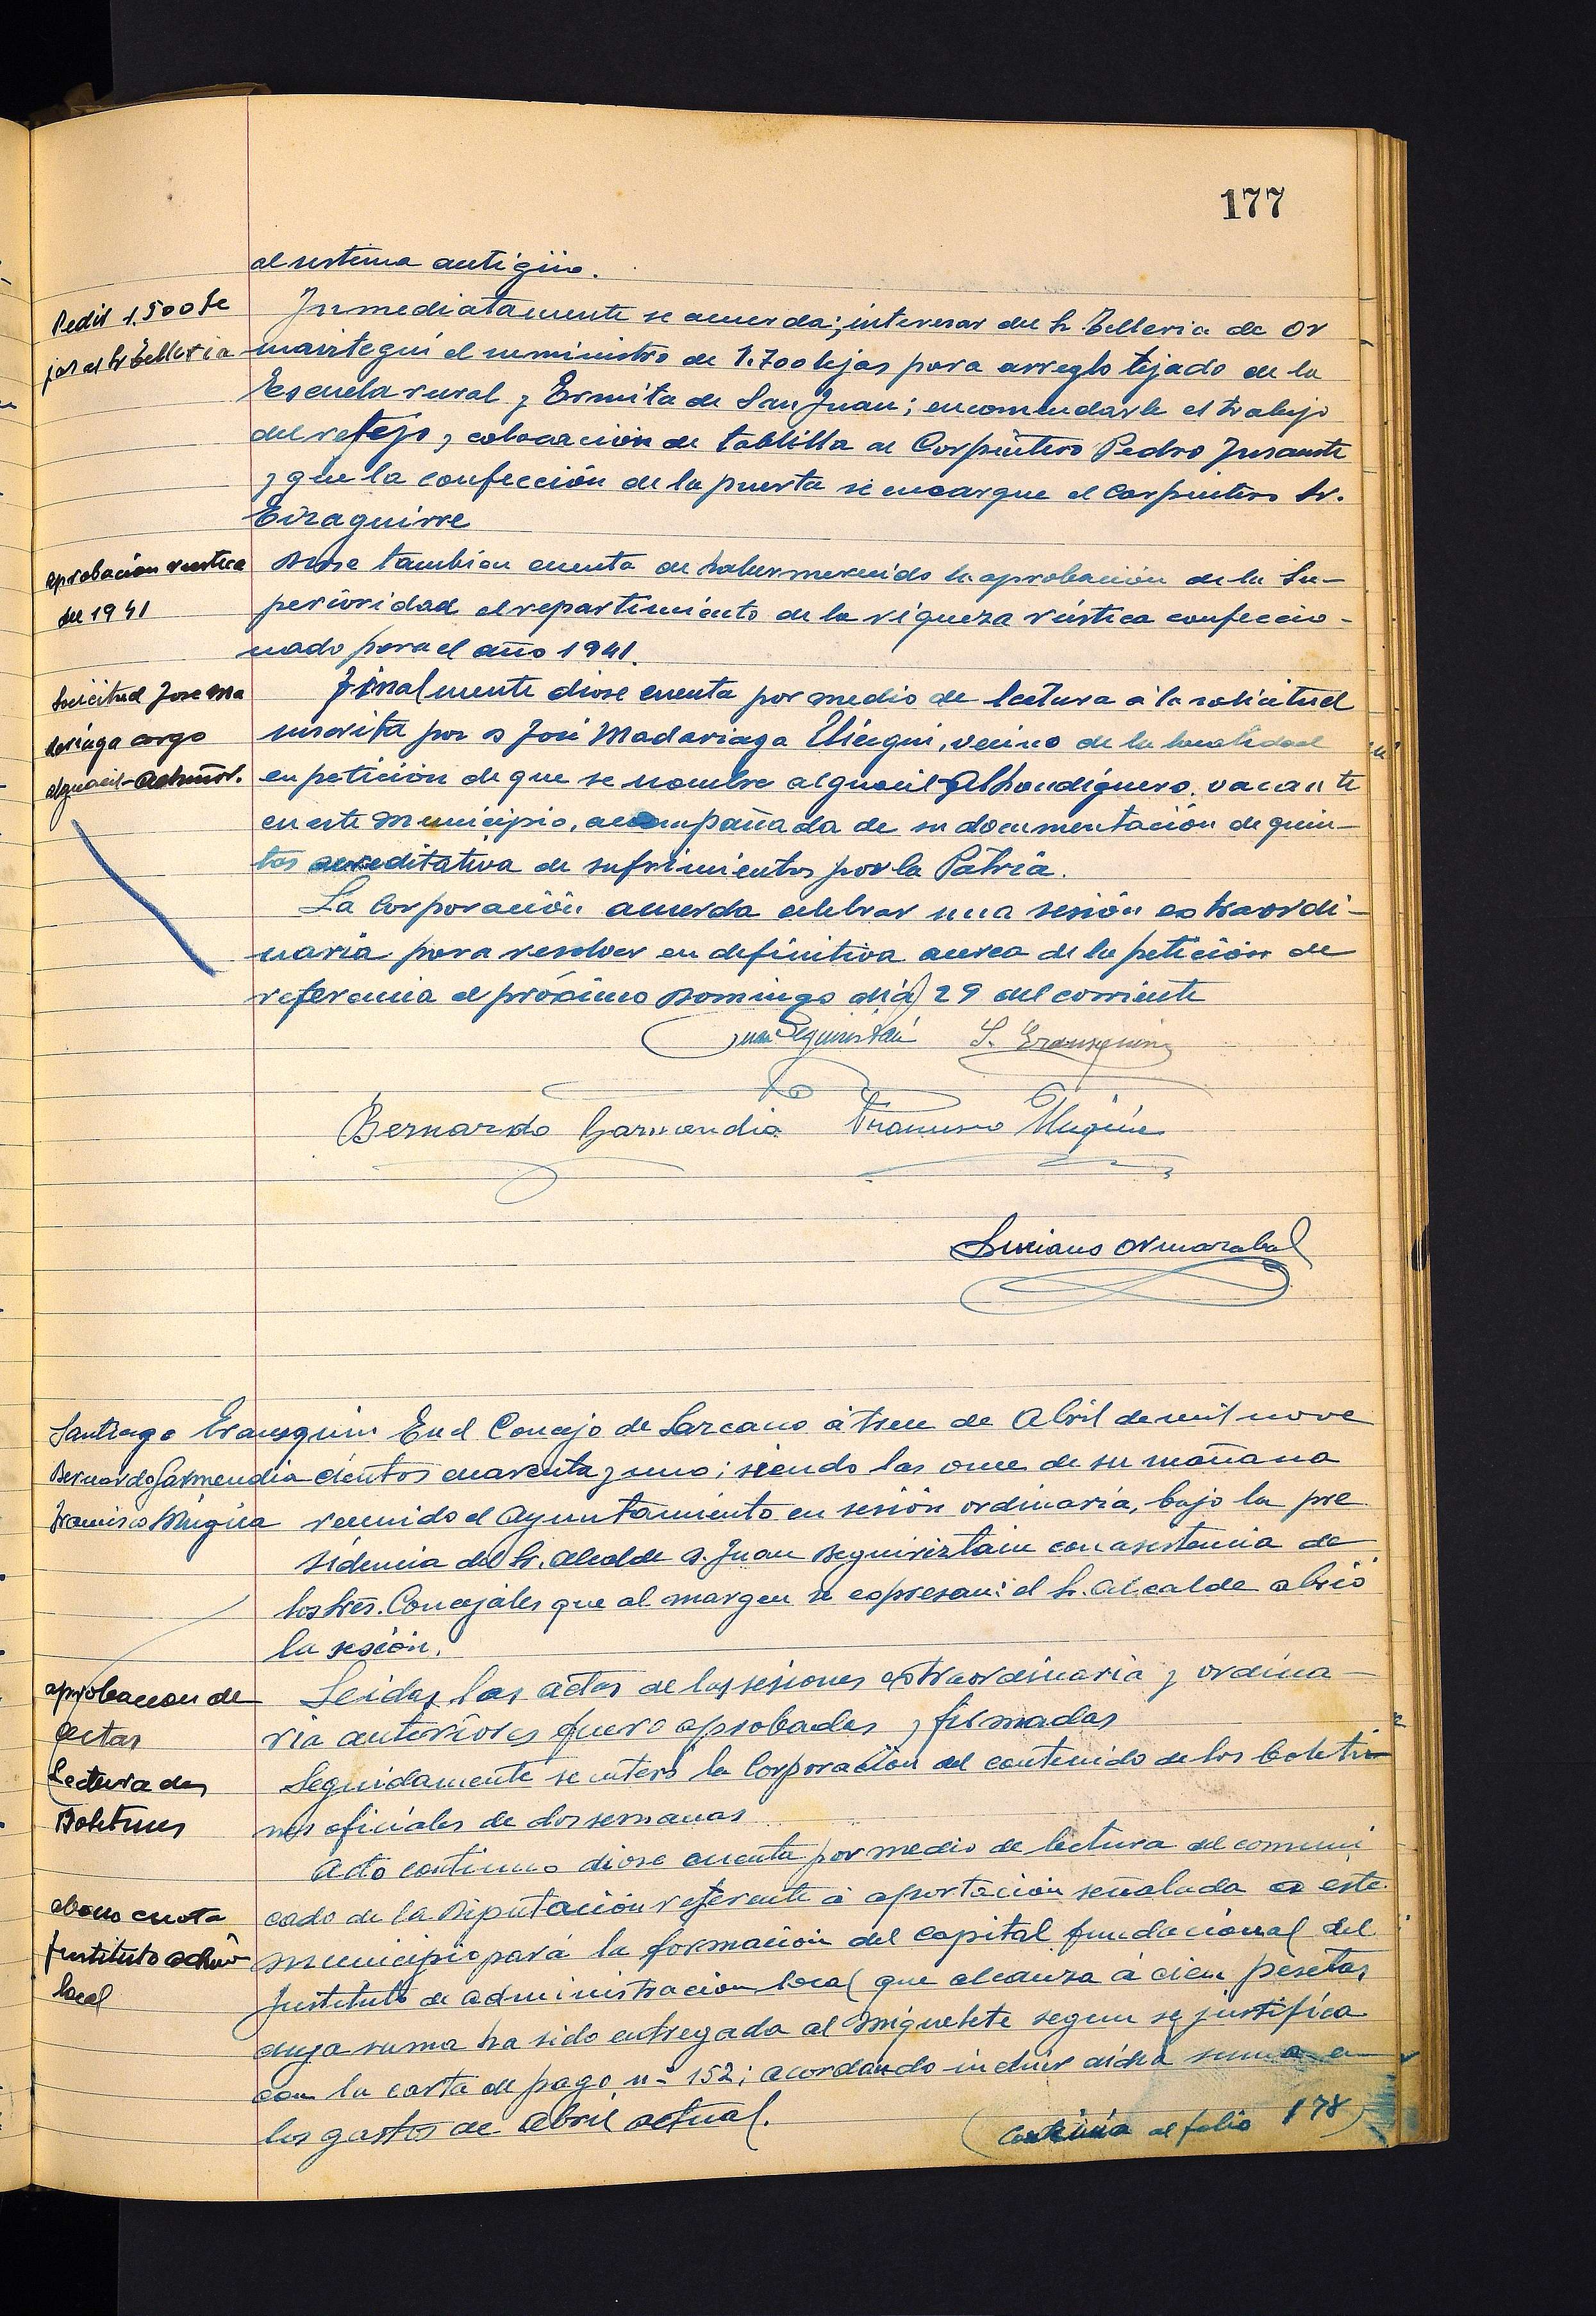 177
al sistema antigüo.
Pedir 1.500 te
jas al Sr Telleria
Inmediatamente se acuerda; interesar del Sr. Telleria de Or
maiztegui el suministro de 1.700 tejas para arreglo tejado de la
Escuela rural y Ermita de San Juan; encomendarle el trabajo
del retejo y colocación de tablilla al Carpintero Pedro
y que la confección de la puerta se encargue el carpintero Sr.
Eizaguirre
aprobación rustica
del 1941
Diose tambien cuenta de haber merecido la aprobación de la Su-
perioridad el repartimiento de la riqueza rústica confeccio-
nado para el año 1941.
Solicitud Jose Ma
dariaga cargo
alguacil-admor.
Finalmente diose cuenta por medio de lectura á la solicitud
suscrita por D José Madariaga, vecino de la localidad
en petición de que se nombre alguacil-Alhondiguero, vacante
en este Municipio, acompañada de su documentación de quin-
tas acreditativa de sufrimientos por la Patria.
La Corporación acuerda celebrar una sesión extraordi-
naria para resolver en definitiva acerca de la petición de
referencia el próximo Domingo día 29 del corriente
Juan Beguiristain S. Erausquin
Bernardo Garmendia Francisco Mugica
Luciano Ormazabal
Santiago Erausquin
Bernardo Garmendia
Francisco Mugica
En el Concejo de Lazcano á trece de Abril de mil nove
cientos cuarenta y uno; siendo las once de su mañana
reunido el Ayuntamiento en sesión ordinaria, bajo la pre
sidencia del Sr. Alcalde D. Juan Beguiriztain con asistencia de
los Sres. Concejales que al margen se expresan: el Sr. Alcalde abrió
la sesión.
aprobacion de
actas
Leidas las actas de las sesiones extraordinaria y ordina-
ria anteriores fuero aprobadas y firmadas
Lectura de
Boletines
Seguidamente se enteró la Corporación del contenido de los boleti-
nes oficiales de dos semanas
Acto continuo diose cuenta por medio de lectura al comuni
abono cuota
Instituto admón
local
cado de la Diputación referente á aportación señalada a este
municipio para la formación del capital fundacional del
Instituto de administración local que alcanza á cien pesetas
cuya suma ha sido entregada al Miquelete segun se justifica
con la carta de pago nº 152; acordando incluir dicha suma en
los gastos de Abril actual.
(Continúa al folio 178)